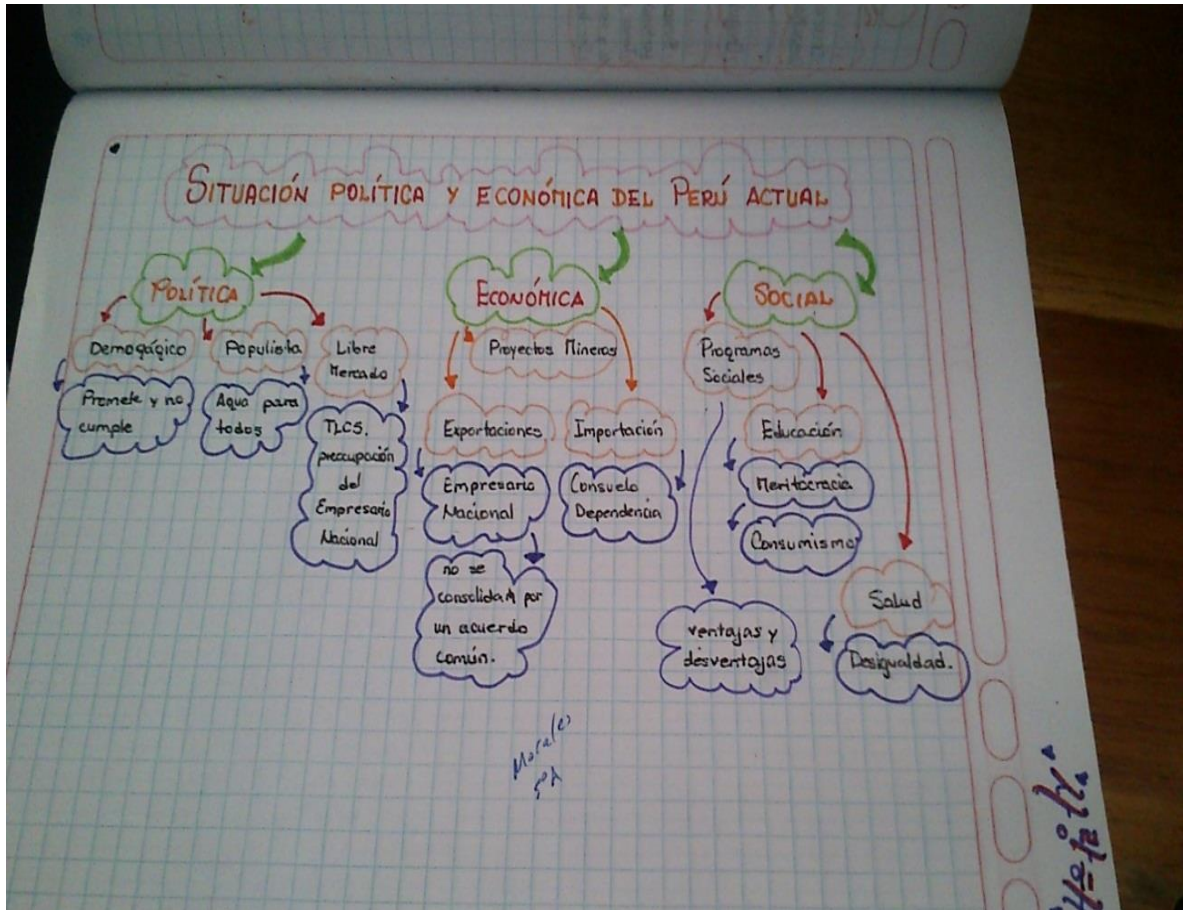 SITUACIÓN POLÍTICA Y ECONÓMICA DEL PERÚ ACTUAL
POLÍTICA
Demogágico
Promete y no
cumple
Populista
Agua para
todos
Libre
Mercado
TLCS.
preocupación
del
Empresario
Nacional
ECONÓMICA
Proyectos Mineros
Exportaciones
Empresario
Nacional
no se
consolida por
un acuerdo
común.
Importación
Consuelo
Dependencia
SOCIAL
Programas
Sociales
ventajas y
desventajas
Educación
Meritocracia
Consumismo
Salud
Desigualdad.
Morales
5ºA